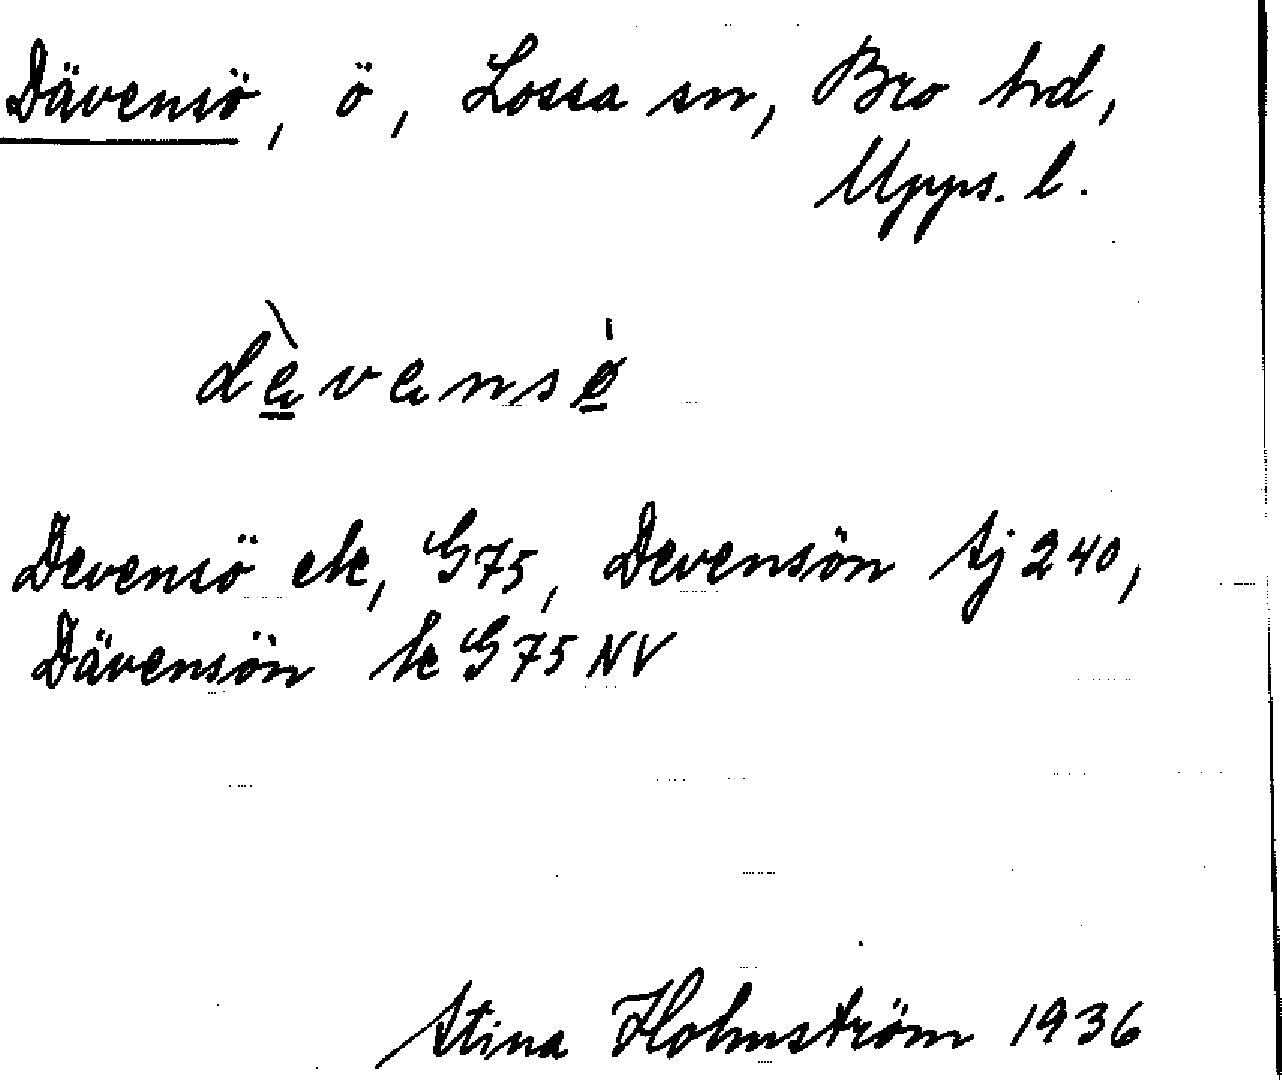 Dävensö, ö, Lossa sn, Bro hd,
Upps. l.
dèvensø
Devensö ek, G75, Devensön sj 240,
Dävensön k G75 NV
Stina Holmström 1936